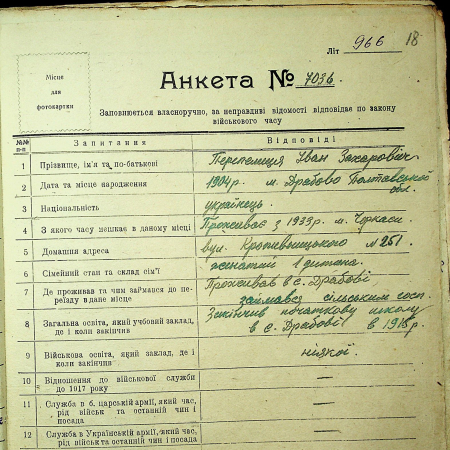 Літ 966 18
Місце
для
фотокартки
Анкета № 7036.
Заповнюється власноручно, за неправдиві відомості відповідає по закону
військового часу
№№ п-п Запитання Відповіді
1 Прізвище, ім'я та по-батькові Перепелиця Іван Захарович
2 Дата та місце народження 1904 р. м. Драбово Полтавської обл.
3 Національність українець.
4 З якого часу мешкає в даному місці Проживає з 1933 р. м. Черкаси.
5 Домашня адреса вул. Кропивницького № 251.
6 Сімейний стан та склад сім'ї жонатий 1 дитина.
7 Де проживав та чим займався до пе-
реїзду в дане місце Проживав в с. Драбові
займався сільським госп.
8 Загальна освіта, який учбовий заклад,
де і коли закінчив Закінчив початкову школу
в с. Драбові в 1915 р.
9 Військова освіта, який заклад, де і
коли закінчив ніякої.
10 Відношення до військової служби
до 1917 року —
11 Служба в б. царській армії, який час,
рід військ та останній чин і
посада —
12 Служба в Українській армії, який час,
рід військ та останній чин і посада —